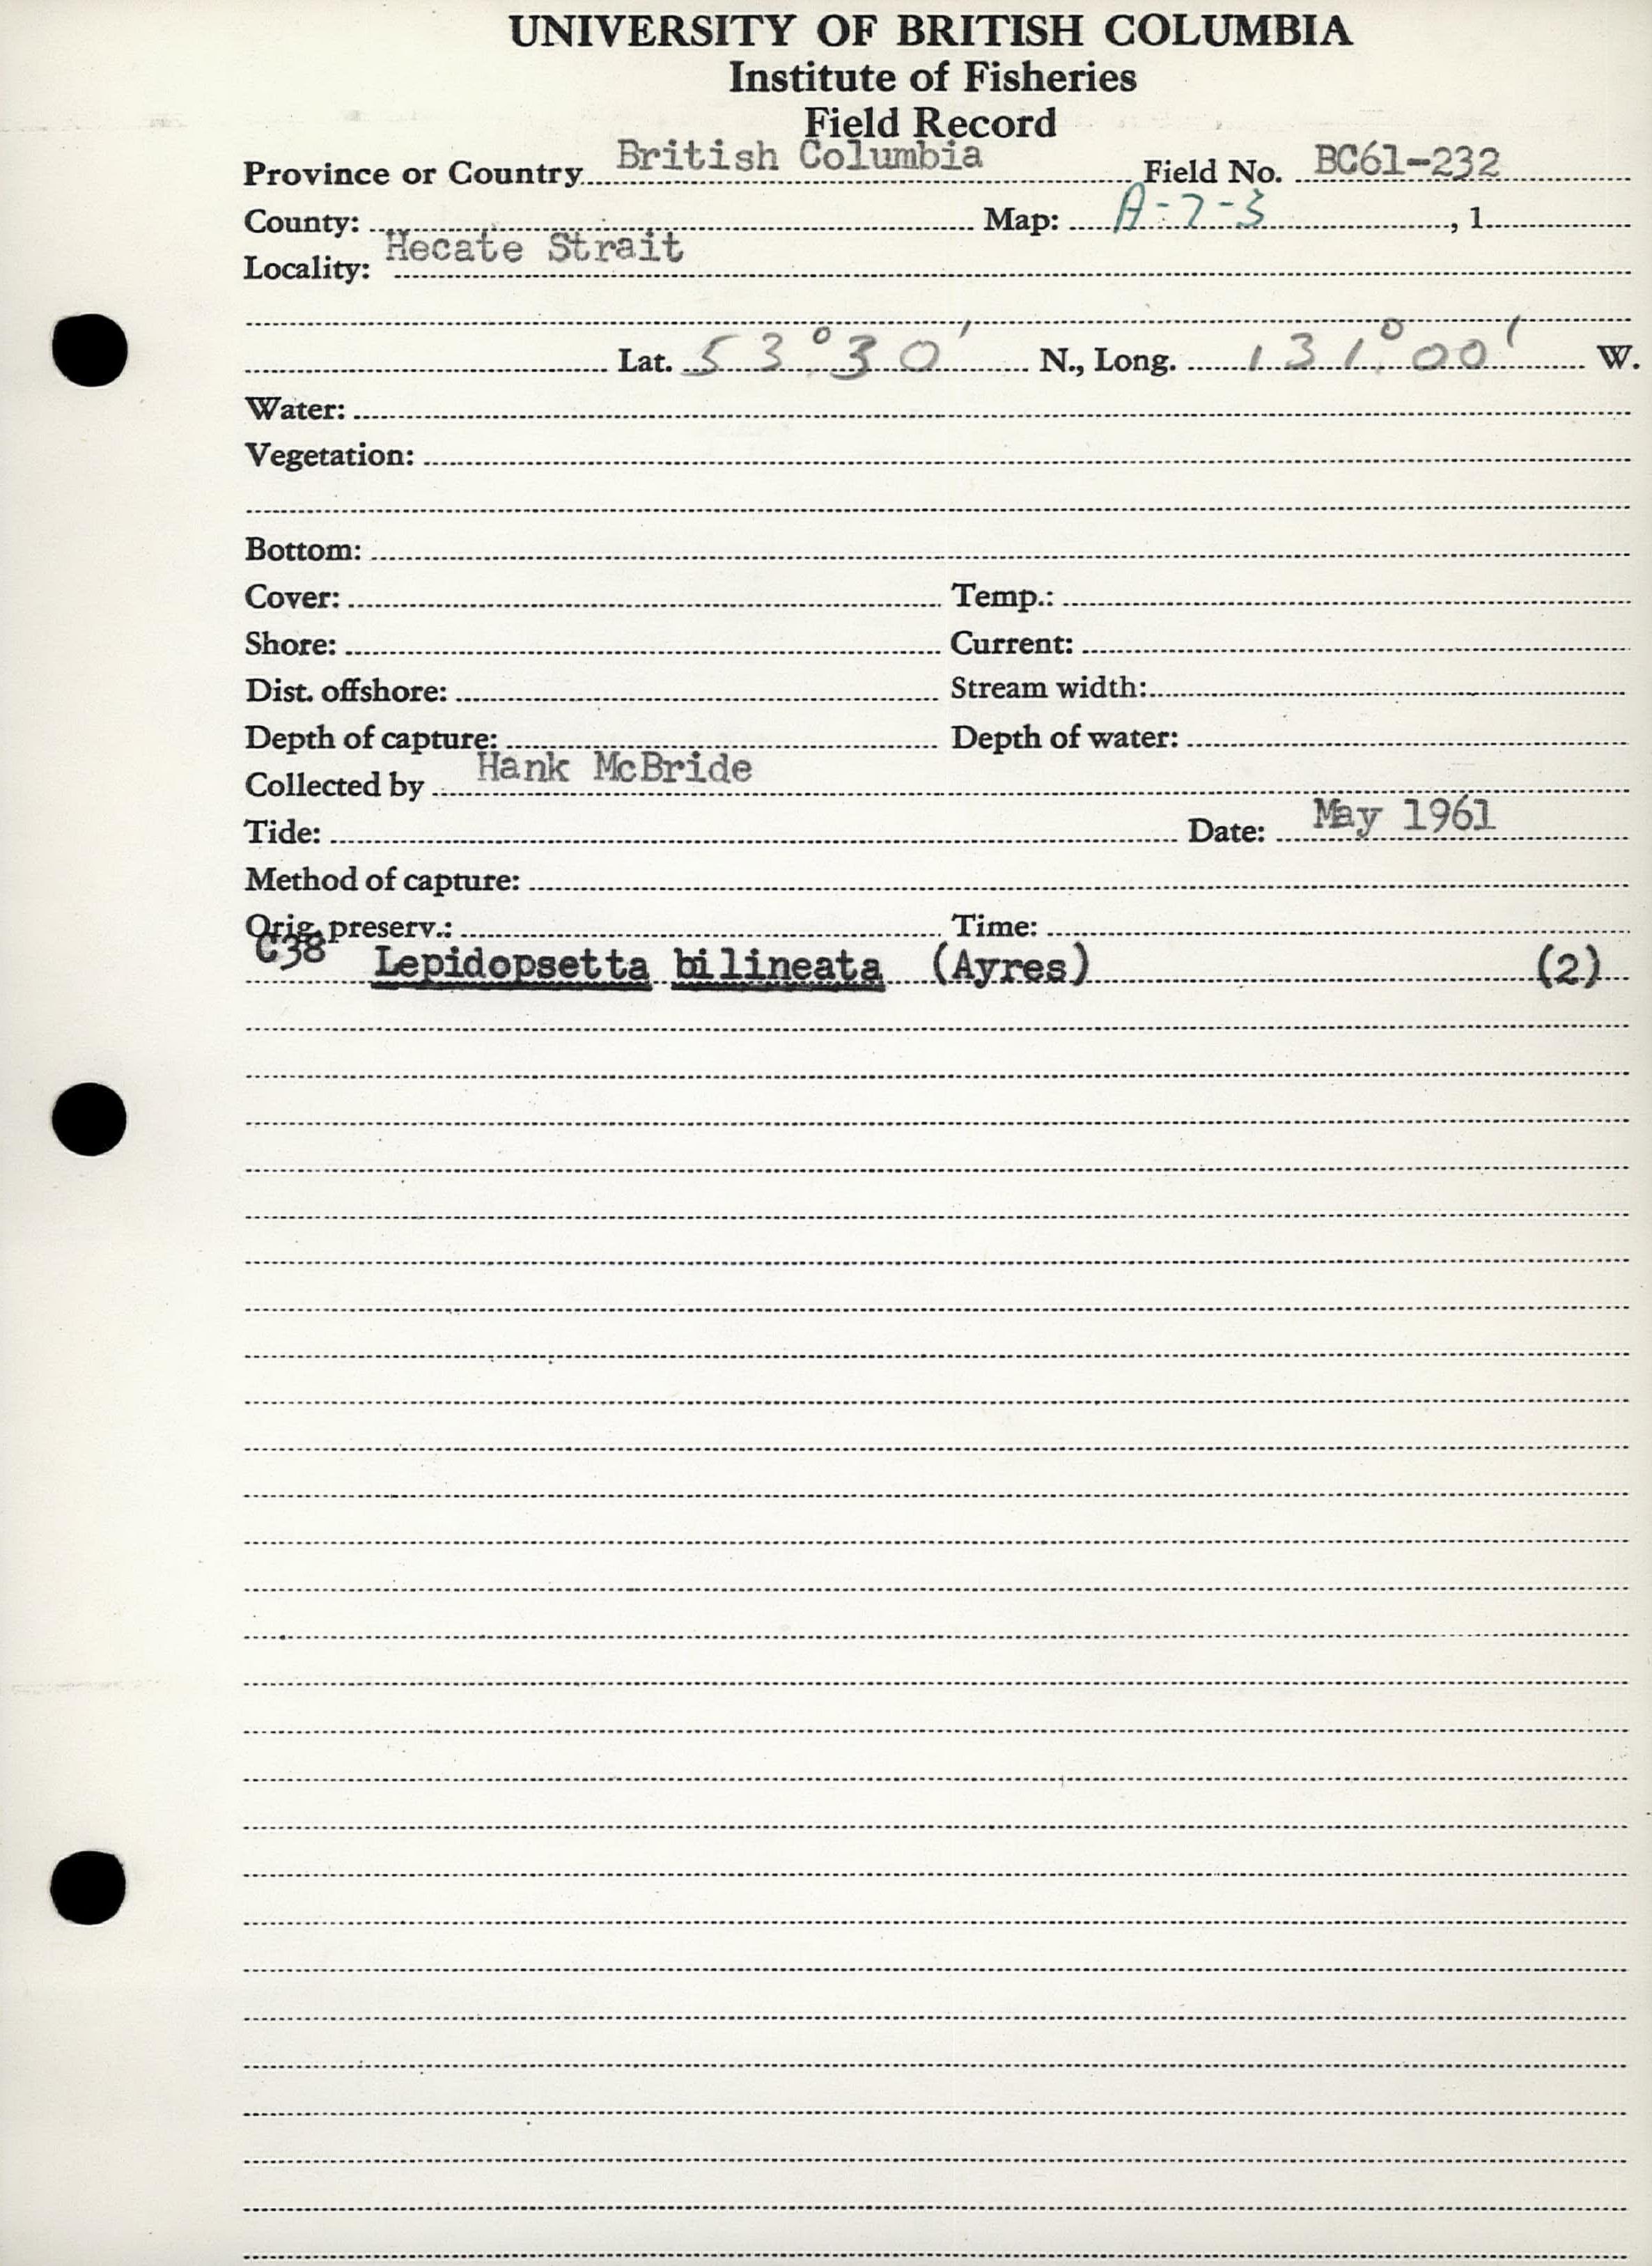 UNIVERSITY OF BRITISH COLUMBIA
Institute of Fisheries
Field Record
Province or Country British Columbia Field No. BC61-232
County: Map: A-7-3 , 1
Locality: Hecate Strait
Lat. 53°30' N., Long. 131°00' W.
Water:
Vegetation:
Bottom:
Cover: Temp.:
Shore: Current:
Dist. offshore: Stream width:
Depth of capture: Depth of water:
Collected by Hank McBride
Tide: Date: May 1961
Method of capture:
Orig. preserv.: Time:
C38 Lepidopsetta bilineata (Ayres) (2)